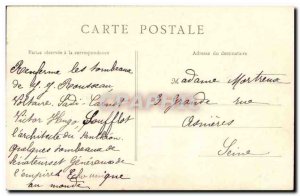 CARTE POSTALE
Partie réservée à la correspondance
Adresse du destinataire
Renferme les tombeaux
de J. J. Rousseau
Voltaire, Sadi Carnot
Victor Hugo Soufflot
l'architecte du Panthéon
quelques tombeaux de
Généraux de
l'empire
au monde
Madame Mortreux
3 grande rue
Asnières
Seine